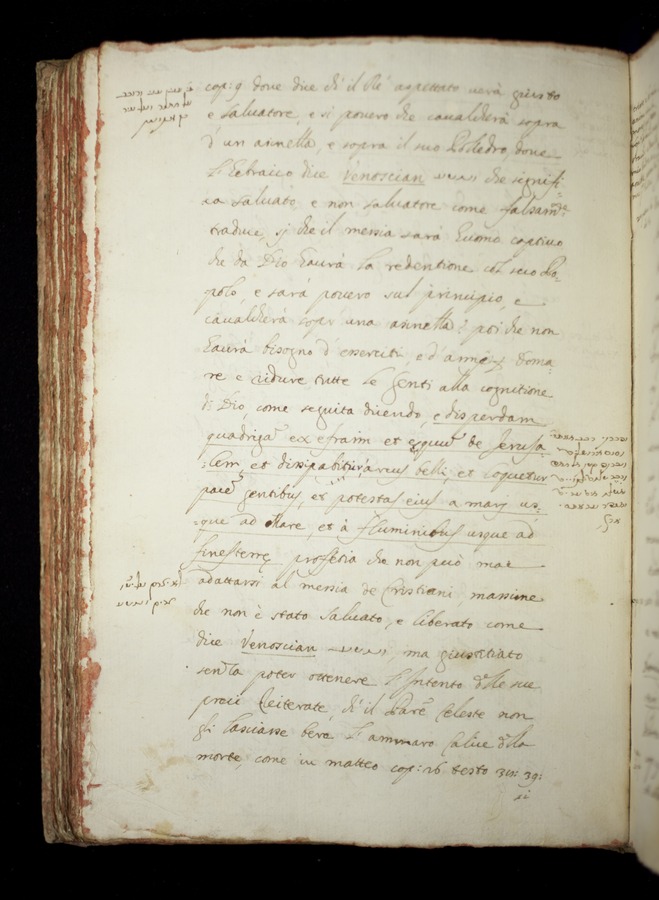 cap: 9 dove dice ch'il Rè aspettato verà giusto
e salvatore, e si povero che cavalcherà sopra
d'un asinella, e sopra il suo Poledro, dove
l'Ebraico dice Venoscian ונושע che signifi=
ca salvato, e non salvatore come falsam.te
traduce, si che il messia sarà huomo captivo
che da Dio haurà la redentione col suo Po=
polo, e sarà povero sul principio, e
cavalcherà sopr'una asinella: poi che non
haurà bisogno d'esserciti, e d'arme p doma=
re e ridure tutte le genti alla cognitione
di Dio, come seguita dicendo, e disperdam
quadriga ex efraim et equu de Jerusa
=lem, et dissipabitur arcus belli, et loquetur
pace gentibus, et potestas eius a mari us=
=que ad Mare, et à fluminibus usque ad
fines terrę profetia che non può mai
adattarsi al messia de Cristiani, massime
che non è stato salvato, e liberato come
dice Venoscian ונושע, ma giustitiato
senza poter ottenere l'intento delle sue
preci reiterate, ch'il Padre Celeste non
gli lasciasse bere l'ammaro Calice della
morte, come in matteo cap: 26 testo 39:
si